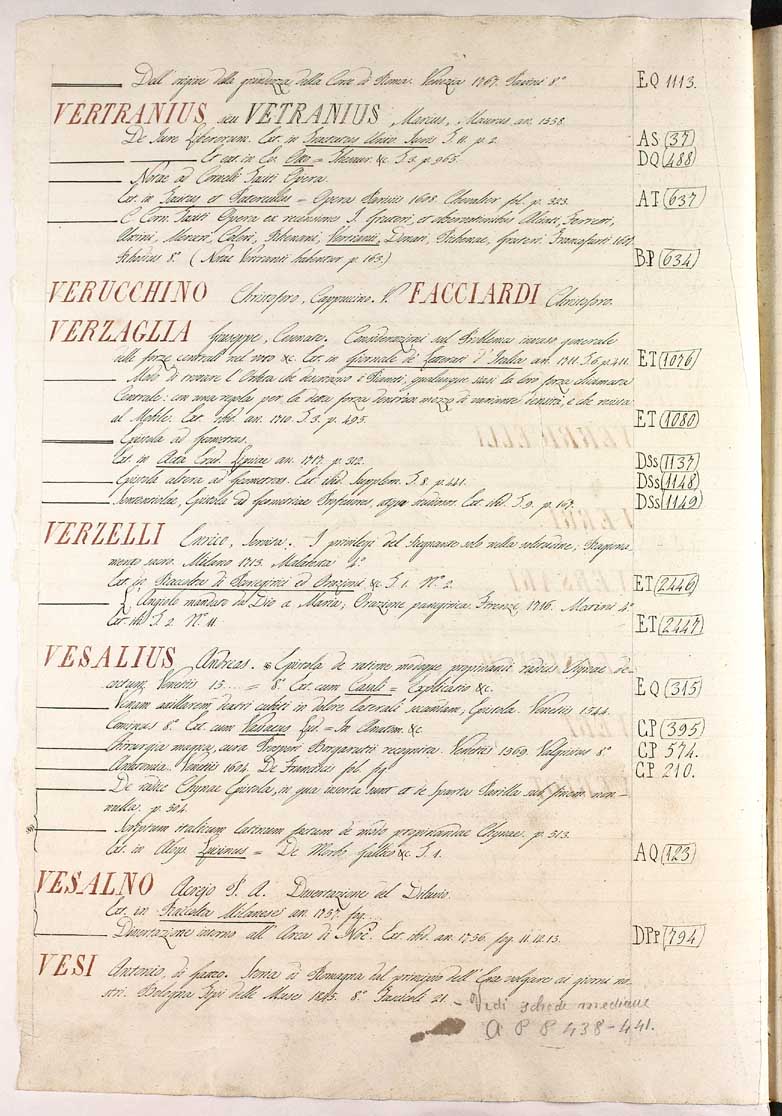 Dell' origine della grandezza della Corte di Roma. Venezia 1767. Pasini 8° EQ 1113.
VERTRANIUS, seu VETRANIUS, Marcus, Maurus an. 1558.
De Jure Liberorum. Ext. in Tractatus Univ. Juris T. 11. p. 2. AS (37)
Et ext. in Ev. Otto = Thesaur. &c. T. 3. p. 965. DQ (488)
Notae ad Cornelii Taciti Opera.
Ext. in Tacitus et Paterculus = Opera Parisiis 1608. Chevalier fol. p. 323. AT (637)
C. Corn. Taciti Opera ex recensione J. Gruteri, et observationibus Alciati, Ferreti,
Ursini, Merceri, Coleri, Rhenani, Vertranii, Donati, Pichenae, Gruteri. Francofurti 1607.
8° (Notae Vertranii habentur p. 163.) BP (634)
VERUCCHINO Christoforo, Cappuccino. V. FACCIARDI Christoforo.
VERZAGLIA Giuseppe, Cesenate. Considerazioni sul Problema inverso generale
delle forze centrali nel voto &c. Ext. in Giornale de' Letterati d' Italia an. 1711. T. 6. p. 411. ET (1076)
Modo di trovare l' Orbita che descrivono i Pianeti, qualunque siasi la loro forza chiamata
Centrale: con una regola per la data forza dentro a mezzo di variante densità, e che resista
al Mobile. Ext. ibid. an. 1710. T. 3. p. 495. ET (1080)
Epistola ad Geometras.
Ext. in Acta Erud. Lipsiae an. 1717. p. 312. DSs (1137)
Epistola altera ad Geometras. Ext. ibid. Supplem. T. 8. p. 441. DSs (1148)
Epistola ad Geometriae Professores, atque studiosos. Ext. ibid. T. 9. p. 167. DSs (1149)
VERZELLI Enrico, Servita. I privilegi del Regnante solo nella solitudine; Ragiona-
mento sacro. Milano 1713. Malatesta 4°
Ext. in Raccolta di Panegirici ed Orazioni &c. T. 1. N.° 2. ET (2446)
L' Angelo mandato da Dio a Maria; Orazione panegirica. Firenze 1716. Marini 4°
Ext. ibi T. 2. N.° 11. ET (2447)
VESALIUS Andreas. Epistola de ratione modoque propinandi radicis Chynae de-
coctum, Venetiis 15.... = 8.° Ext. cum Casali = Explicatio &c. EQ (315)
Venam axillarem dextri cubiti in dolore laterali secandam, Epistola. Venetiis 1544.
Cominus 8° Ext. cum Vassaeus Lud. = In Anatom. &c. CP (395)
Chirurgia magna, cura Prosperi Borgarutii recognita. Venetiis 1569. Valgrisius 8° CP 574.
Anatomia. Venetiis 1604. De Franciscis fol. fig. CP 210.
De radice Chynae Epistola, in qua inserta sunt et de Sparta Parilla non-
nulla. p. 304.
Scriptum italicum latinum factum de modo propinandae Chynae. p. 313.
Ext. in Aloys. Luisinus = De Morbo Gallico &c. T. 1. AQ (123)
VESALNO P. A. Dissertazione del Diluvio.
Ext. in Raccolta Milanese an. 1757. fog. ...
Dissertazione intorno all' Arca di Noè. Ext. ibid. an. 1756. fog. 11. 12. 13. DPp (794)
VESI Antonio, di Fazzo. Storia di Romagna dal principio dell' Era volgare ai giorni no-
stri. Bologna Tipi delle Muse 1845. 8° Fascicoli 21. - Vedi schede mediane
A P 8 438-441.